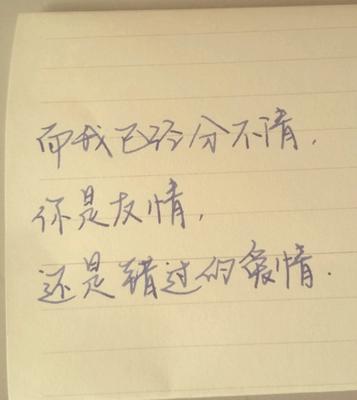 而我已经分不清，
你是友情，
还是错过的爱情.